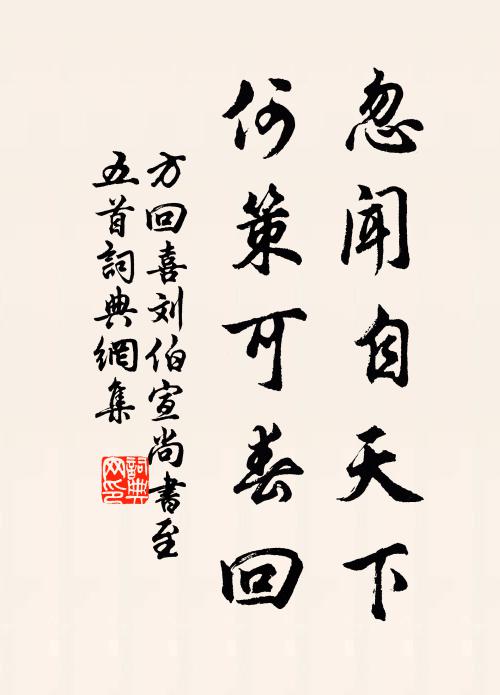 忽闻自天下
何策可春回
方回喜刘伯宣尚書至
五首詞典網集
詞典網印